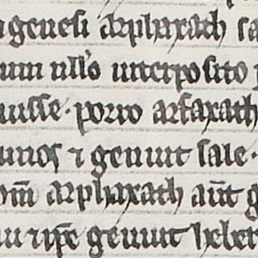 genesi arphaxath sa
um ullo interposito
uisse · porro arfaxath
unos ⁊ genuit sale ·
om̄ arphaxath aūt g
⁊ ip̄e genuit heber